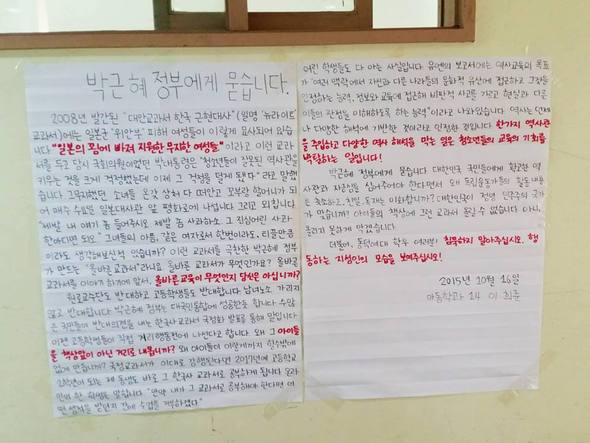 박근혜 정부에게 묻습니다.
2008년 발간된 "대안교과서 한국 근현대사"(일명 뉴라이트
교과서)에는 일본군 '위안부' 피해 여성들이 이렇게 묘사되어 있습
니다. "일본의 꾐에 빠져 지원한 무지한 여성들" 이라고 이런 교과
서를 두고 당시 국회의원이었던 박대통령은 "청소년들이 잘못된 역사관을
키우는 것을 크게 걱정했는데 이제 그 걱정을 덜게 됐다" 라고 말했
습니다.
매주 수요일 일본대사관 앞 평화로에 나섭니다. 그리고 외칩니다.
"제발 내 얘기 좀 들어주시오 제발 좀 사과하소. 그 진심어린 사과
한마디면 되오." 그녀들의 아픔, 같은 여자로서 한번이라도, 티끌만큼
이라도 생각해보신적 있습니까? 이런 교과서를 극찬한 박근혜 정부
가 만드는 "올바른 교과서"라니요. 올바른 교과서가 무엇인가요? 올바른
교과서를 이야기 하기에 앞서, 올바른 교육이 무엇인지 당신은 아십니까?
원로교수단도 반대하고 고등학생들도 반대합니다. 남녀노소 가리지
않고 반대합니다. 박근혜 정부는 대국민통합에 성공한 듯 합니다. 수많
은 국민들이 반대의견을 내는 한국사교과서 국정화 발표를 통해 말입니다.
이젠 고등학생들이 직접 거리행동전에 나선다고 합니다. 왜 그 아이들
을 책상앞이 아닌 거리로 내몹니까? 왜 아이들이 이렇게까지 할 수밖에
없게 만듭니까? 국정교과서가 이대로 강행된다면 2017년에 고등학교
2학년이 되는 제 동생도 바로 그 한국사 교과서로 공부하게 됩니다.
"만약 내가 그 교과서로 공부해야 한다면 어
떤 벌점을 받던지 간에 수업을 거부하겠다."
어린 학생들도 다 아는 사실입니다. 유엔의 보고서에는 역사교육의 목표
가 "여러 맥락에서 자신과 다른 나라들의 문화적 유산에 접근하고 그것을
인정하는 능력, 정보와 교육에 접근해 비판적 사고를 가지고 현실과 다른
이들의 관점을 이해하도록 하는 능력"이라고 나와있습니다. 역사는 언제
나 다양한 해석에 기반한 것이라고 인정한 것입니다. 한가지 역사관
을 주입하고 다양한 역사 해석을 막는 일은 청소년들의 교육의 기회를
박탈하는 일입니다!
박근혜 정부에게 묻습니다. 대한민국 국민들에게 확고한 역
사관과 자긍심을 심어주어야 한다면서 왜 독립운동가들의 활동내용
은 축소하고, 친일, 독재는 미화합니까? 대한민국이 정녕 민주주의 국가
가 맞습니까? 아이들의 책상에 그런 교과서 올릴 수 없습니다. 아니,
올리지 못하게 막겠습니다.
더불어, 동덕여대 학우 여러분! 침묵하지 말아주십시오. 행
동하는 지성인의 모습을 보여주십시오!
2015년 10월 16일
아동학과 14 이 희준